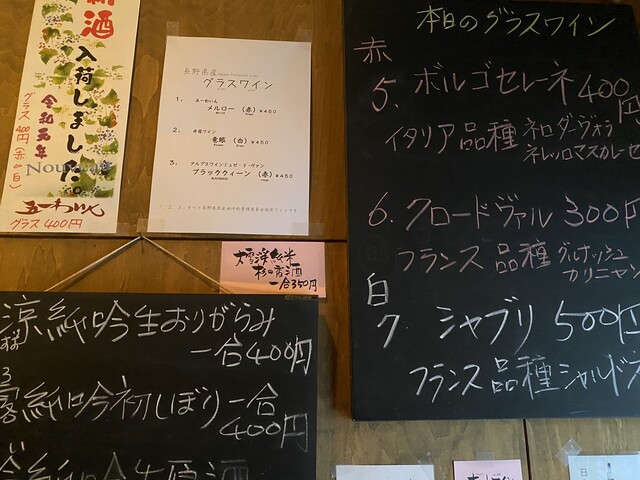 新酒
入荷しました。
令和元年
グラス400円(赤・白)
Nouveau
五一わいん
グラス400円
長野県産
グラスワイン
1. 五一わいん
メルロー (赤) ¥450
2. 井筒ワイン
竜眼 (白) ¥450
3. アルプスワインミュゼ・ド・ヴァン
ブラッククィーン (赤) ¥450
大雪渓純米
杉の香酒
一合350円
涼純吟生おりがらみ
一合400円
純吟初しぼり一合
400円
純吟生原酒
本日のグラスワイン
赤
5. ボルゴセレーネ400円
イタリア品種ネロダーヴォラ
ネレッロマスカレーゼ
6. クロードヴァル300円
フランス品種グルナッシュ
カリニャン
白
7. シャブリ500円
フランス品種シャルド